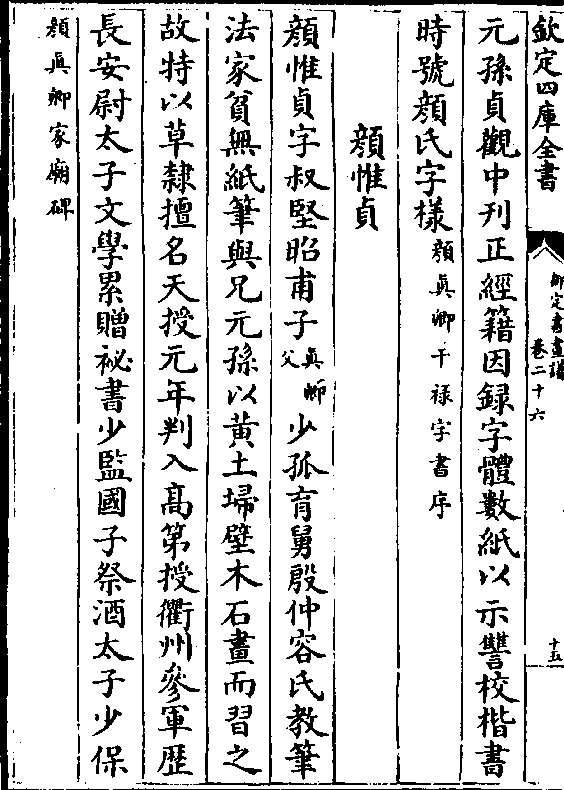 欽定四庫全書
御定書畫譜
卷二十六
十五
元孫貞觀中刊正經籍因録字體數紙以示讐校楷書
時號顔氏字樣顔真卿干禄字書序
顔惟貞
顔惟貞字叔堅昭甫子真卿父少孤育舅殷仲容氏教筆
法家貧無紙筆與兄元孫以黄土埽壁木石畫而習之
故特以草隸擅名天授元年判入髙第授衢州參軍歴
長安尉太子文學累贈祕書少監國子祭酒太子少保
顔真卿家廟碑